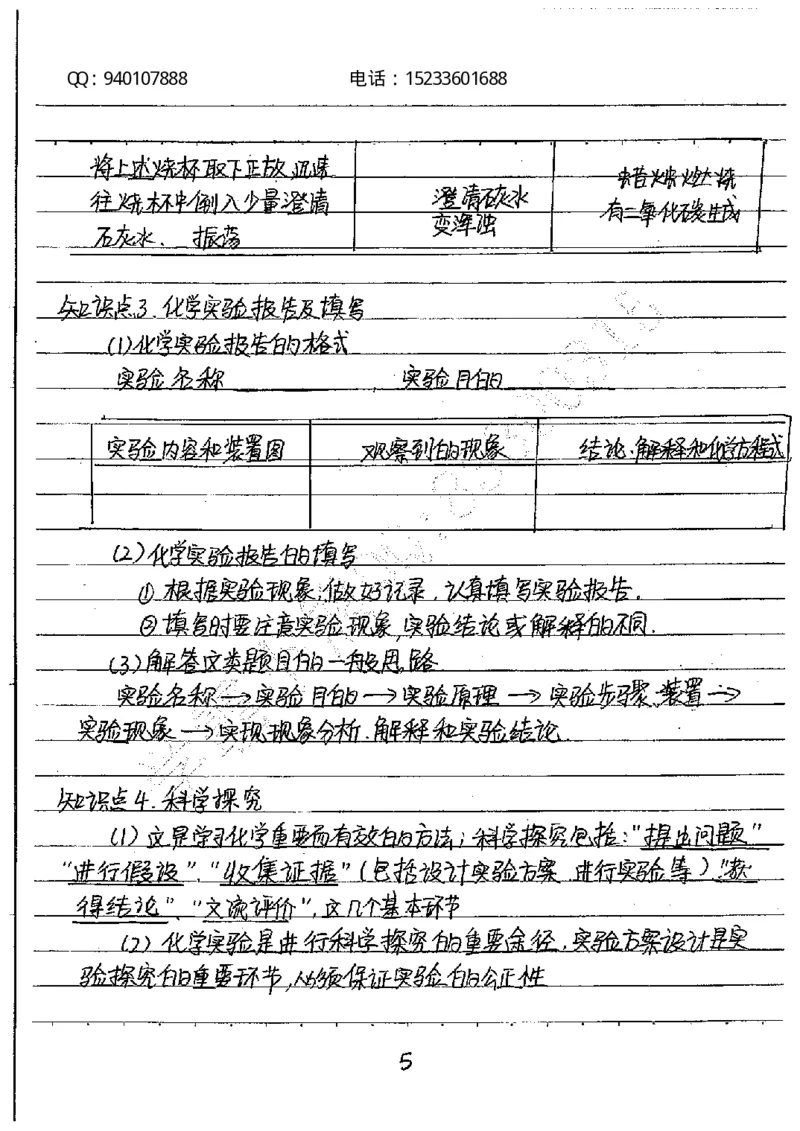 QQ：940107888 电话：15233601688
将上述烧杯取下正放,迅速
往烧杯中倒入少量澄清
石灰水. 振荡
澄清石灰水
变浑浊
蜡烛燃烧
有二氧化碳生成
知识点3. 化学实验报告及填写
(1)化学实验报告的格式
实验名称 实验目的
实验内容和装置图 观察到的现象 结论.解释和化学方程式
(2)化学实验报告的填写
① 根据实验现象,做好记录,认真填写实验报告.
② 填写时要注意实验现象,实验结论或解释的不同.
(3)解答这类题目的一般思路
实验名称→实验目的→实验原理→实验步骤、装置→
实验现象→实现现象分析.解释和实验结论.
知识点4. 科学探究
(1) 这是学习化学重要而有效的方法；科学探究包括："提出问题"
"进行假设"、"收集证据"(包括设计实验方案 进行实验等)、"获
得结论"、"交流评价",这几个基本环节
(2) 化学实验是进行科学探究的重要途径,实验方案设计是实
验探究的重要环节,必须保证实验的公正性
5